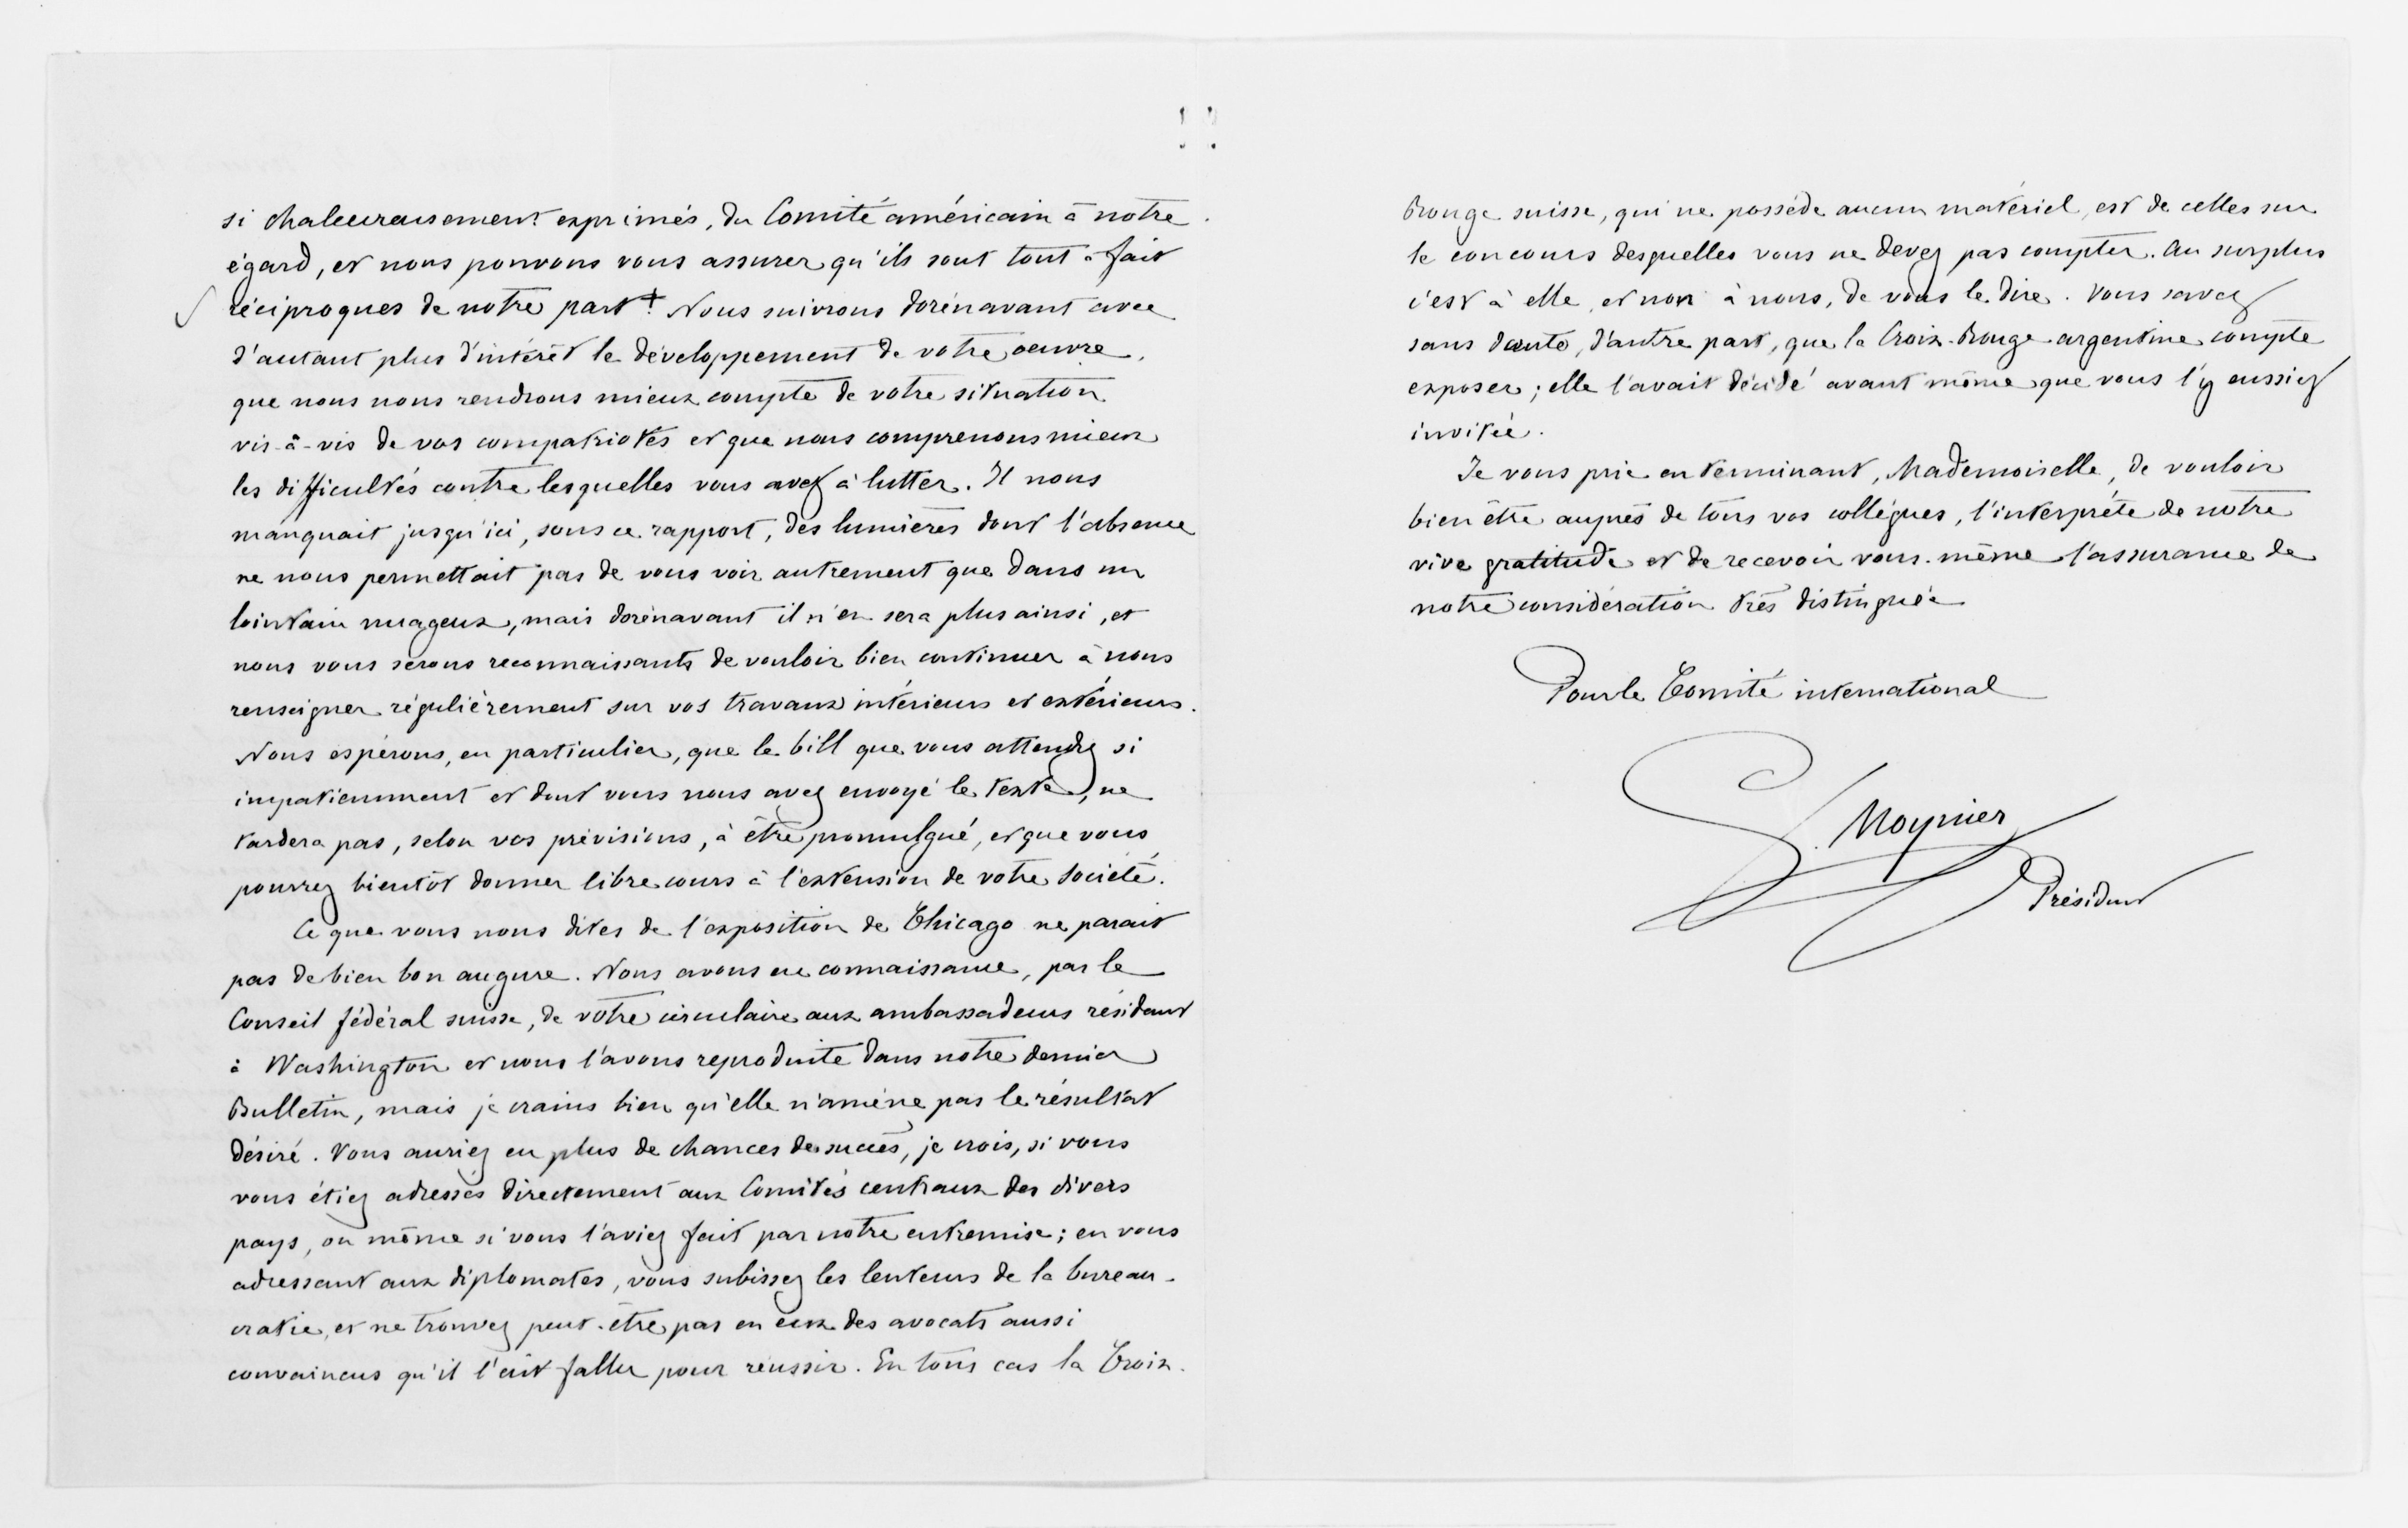 si chaleureusement exprimés, du Comité américain à notre
égard, et nous pouvons vous assurer qu'ils sont tout à fait
réciproques de notre part. Nous suivrons dorénavant avec
d'autant plus d'intérêt le développement de votre oeuvre,
que nous nous rendrons mieux compte de votre situation
vis-à-vis de vos compatriotes et que nous comprenons mieux
les difficultés contre lesquelles vous avez à lutter. Il nous
manquait jusqu'ici, sous ce rapport, des lumières dont l'absence
ne nous permettait pas de vous voir autrement que dans un
lointain nuageux, mais dorénavant il n'en sera plus ainsi, et
nous vous serons reconnaissants de vouloir bien continuer à nous
renseigner régulièrement sur vos travaux intérieurs et extérieurs.
Nous espérons, en particulier, que le bill que vous attendez si
impatiemment et dont vous nous avez envoyé le texte, ne
tardera pas, selon vos prévisions, à être promulgué, et que vous
pourrez bientôt donner libre cours à l'extension de votre Société.
Ce que vous nous dites de l'exposition de Chicago ne parait
pas de bien bon augure. Nous avons eu connaissance, par le
Conseil fédéral suisse, de votre circulaire aux ambassadeurs résidant
à Washington et nous l'avons reproduite dans notre dernier
Bulletin, mais je crains bien qu'elle n'amène pas le résultat
désiré. Vous auriez eu plus de chances de succès, je crois, si vous
vous étiez adressés directement aux Comités centraux des divers
pays, ou même si vous l'aviez fait par notre entremise; en vous
adressant aux diplomates, vous subissez les lenteurs de la bureau-
cratie, et ne trouvez peut-être pas en eux des avocats aussi
convaincus qu'il l'eût fallu pour réussir. En tous cas la Croix-
Rouge suisse, qui ne possède aucun matériel, est de celles sur
le concours desquelles vous ne devez pas compter. Au surplus
c'est à elle, et non à nous, de vous le dire. Vous savez
sans doute, d'autre part, que la Croix-Rouge argentine compte
exposer; elle l'avait décidé avant même que vous l'y eussiez
invitée.
Je vous prie en terminant, Mademoiselle, de vouloir
bien être auprès de tous vos collègues, l'interprète de notre
vive gratitude et de recevoir vous-même l'assurance de
notre considération très distinguée
Pour le Comité international
G. Moynier
Président